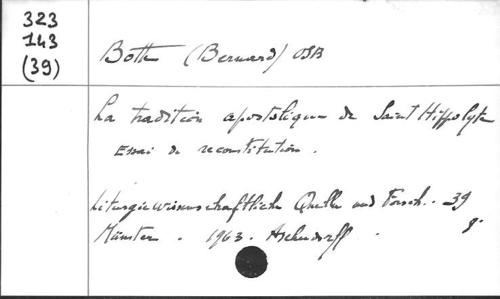 323
143
(39)
Botte (Bernard) OSB
La tradition apostolique de Saint Hippolyte
Essai de reconstitution.
Liturgiewissenschaftliche Quellen und Forsch.. 39
Münster. 1963. Aschendorff. 8°